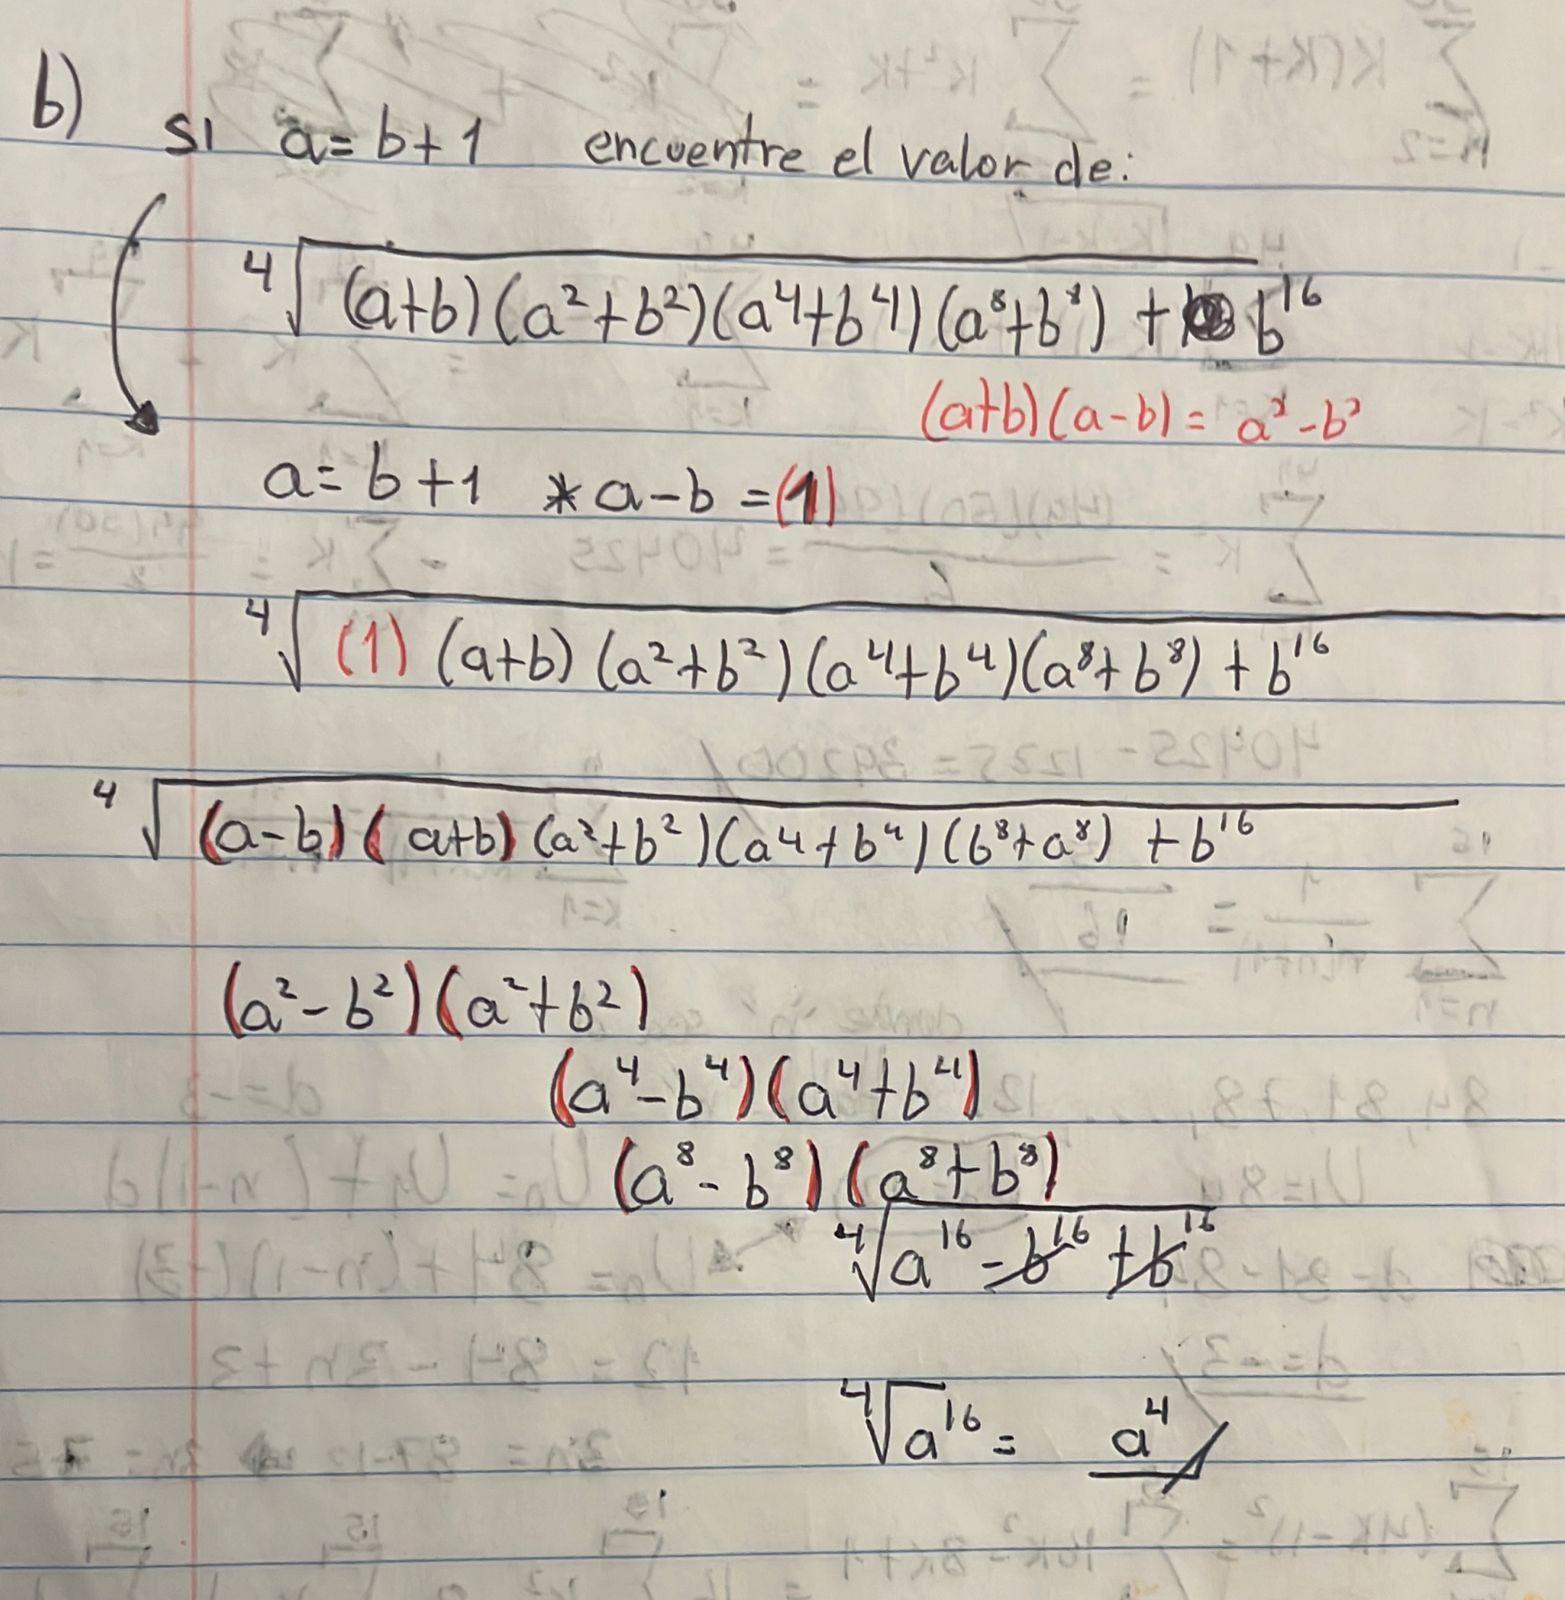 b) Si a = b + 1 encuentre el valor de:
⁴√(a+b)(a²+b²)(a⁴+b⁴)(a⁸+b⁸) + b¹⁶
(a+b)(a-b) = a² - b²
a = b + 1 * a - b = (1)
⁴√(1)(a+b)(a²+b²)(a⁴+b⁴)(a⁸+b⁸) + b¹⁶
⁴√(a-b)(a+b)(a²+b²)(a⁴+b⁴)(b⁸+a⁸) + b¹⁶
(a²-b²)(a²+b²)
(a⁴-b⁴)(a⁴+b⁴)
(a⁸-b⁸)(a⁸+b⁸)
⁴√a¹⁶ - b¹⁶ + b¹⁶
⁴√a¹⁶ = a⁴